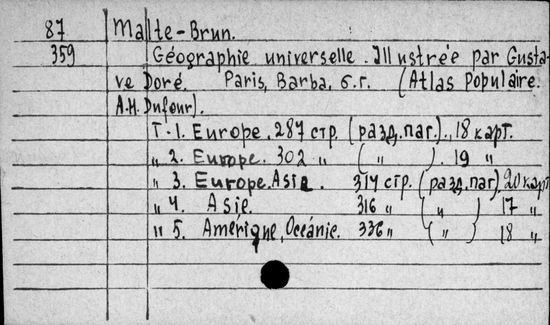 87 Malte-Brun.
359 Géographie universelle. Illustrée par Gusta-
ve Doré. Paris, Barba, б.г. (Atlas Populaire.
A.H. Dufour).
Т. 1. Europe. 287 стр. (разд.паг.), 18 карт.
„ 2. Europe. 302 „ ( „ ). 19 „
„ 3. Europe. Asie. 314 стр. (разд.паг), 20 карт
„ 4. Asie. 316 „ ( „ ) 17 „
„ 5. Amérique, Océanie. 336 „ ( „ ) 18 „